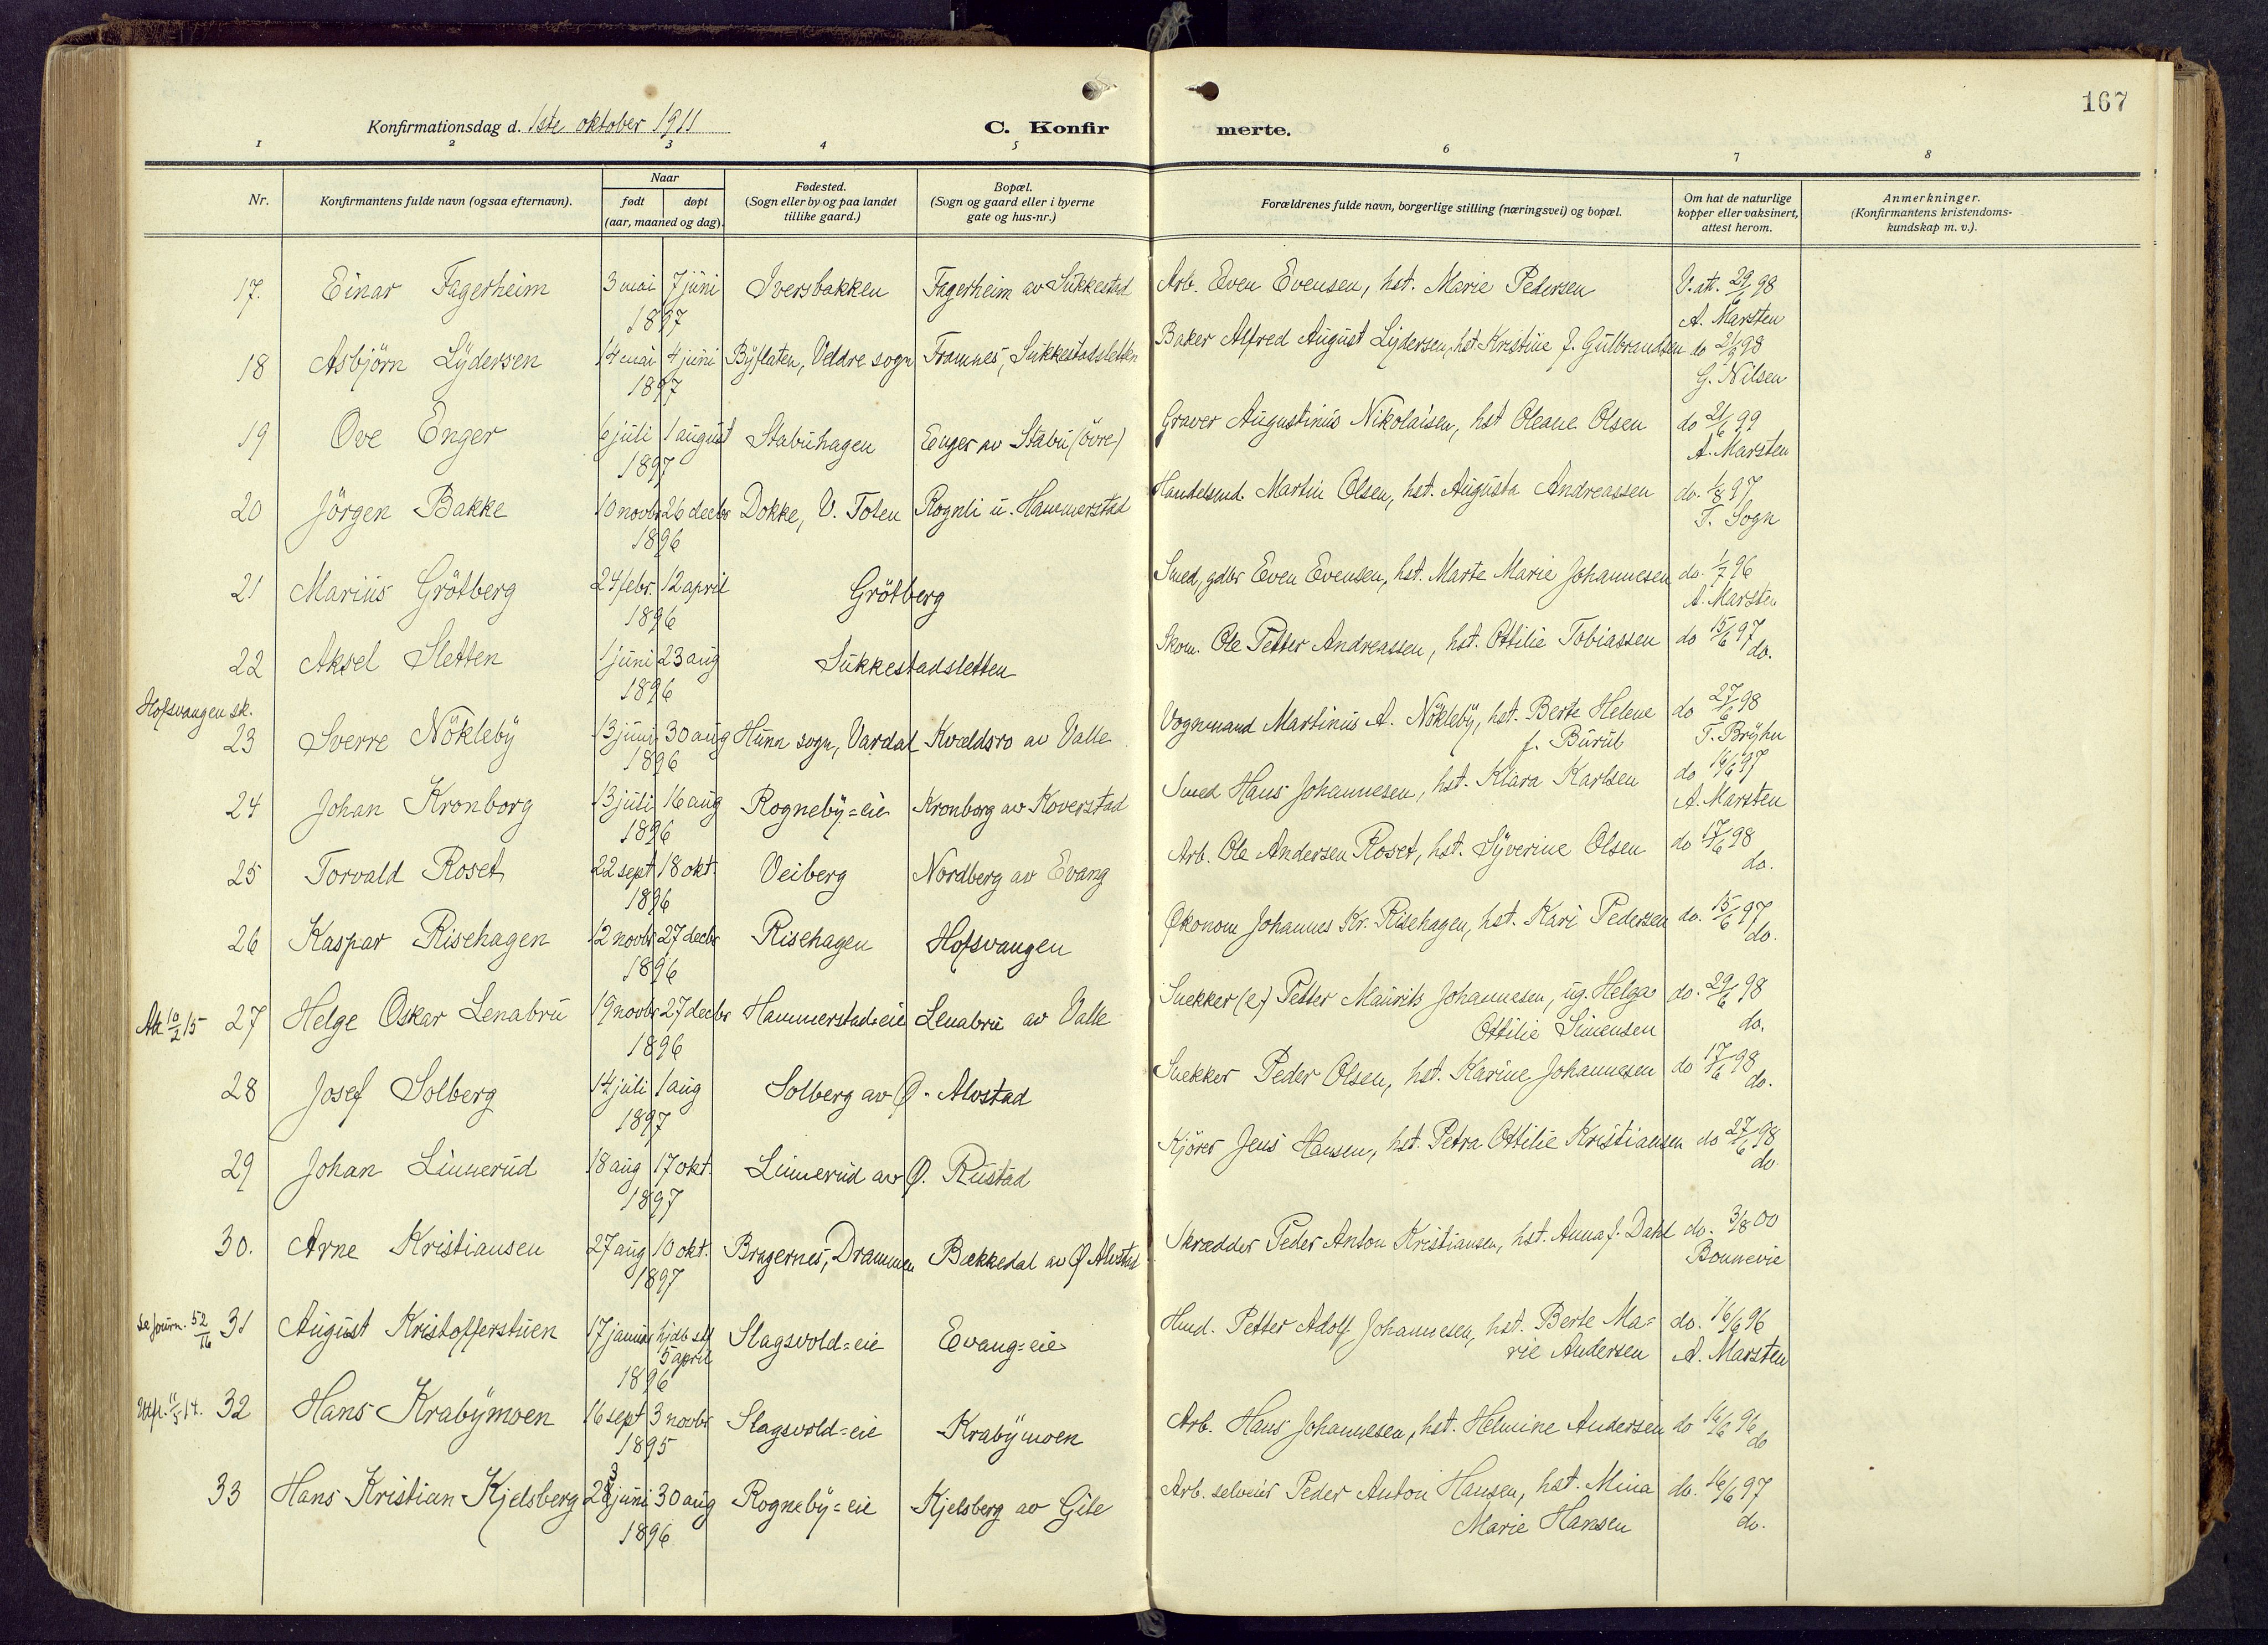 167
Konfirmationsdag d. 1ste oktober 1911
C. Konfirmerte.
1 2 3 4 5 6 7 8
Nr.
Konfirmantens fulde navn (ogsaa efternavn).
Naar
født døpt
(aar, maaned og dag).
Fødested.
(Sogn eller by og paa landet
tillike gaard.)
Bopæl.
(Sogn og gaard eller i byerne
gate og hus-nr.)
Forældrenes fulde navn, borgerlige stilling (næringsvei) og bopæl.
Om hat de naturlige
kopper eller vaksinert,
attest herom.
Anmerkninger.
(Konfirmantens kristendoms-
kundskap m. v.).
17. Einar Fagerheim 3 mai 7 juni Iversbakken Fagerheim av Sukkestad Arb. Even Evensen, hst. Marie Pedersen V. att. 29/6 98
1897 A. Marsten
18 Asbjörn Lydersen 14 mai 4 juni Byflaten, Veldre sogn Framnes, Sukkestadsletten Baker Alfred August Lydersen, hst Kristine f. Gulbrandsen do 2/9 98
1897 G. Nilsen
19 Ove Enger 6 juli 1 august Stabuhagen Enger av Stabu (övre) Graver Augustinus Nikolaisen, hst Oleane Olsen do 21/6 99
1897 A. Marsten
20 Jörgen Bakke 10 novbr 26 decbr Dokke, V. Toten Rognli u. Hammerstad Handelsmd. Martin Olsen, hst. Augusta Andreassen do. 1/8 97
1896 T. Sogn
21 Marius Grötberg 24 febr. 12 april Grötberg Smed, gdbr Even Evensen, hst. Marte Marie Johannesen do. 1/7 96
1896 A. Marsten
22 Aksel Sletten 1 juni 23 aug Sukkestadsletten Skom. Ole Petter Andreassen, hst. Ottilie Tobiassen do 15/6 97
1896 do.
Hofsvangen sk.
23 Sverre Nökleby 13 juni 30 aug Hunn sogn, Vardal Kvældsro av Valle Vognmand Martinus A. Nökleby, hst. Berte Helene do 27/6 98
1896 f. Burul T. Bryhn
24 Johan Kronborg 13 juli 16 aug Rogneby=eie Kronborg av Koverstad Smed Hans Johannesen, hst. Klara Karlsen do 16/6 97
1896 A. Marsten
25 Torvald Roset 22 sept 18 okt. Veiberg Nordberg av Evang Arb. Ole Andersen Roset, hst. Syverine Olsen do 17/6 98
1896 do.
26 Kaspar Risehagen 12 novbr 27 decbr Risehagen Hofsvangen Økonom Johannes Kr. Risehagen, hst. Kari Pedersen do. 15/6 97
1896 do.
Att 10/2 15 27 Helge Oskar Lenabru 19 novbr 27 decbr Hammerstad=eie Lenabru av Valle Snekker (e) Petter Maurits Johannesen, ug. Helga do. 29/6 98
1896 Ottilie Simensen do.
28 Josef Solberg 14 juli 1 aug Solberg av Ø. Alvstad Snekker Peder Olsen, hst. Karine Johannesen do 17/6 98
1897 do.
29 Johan Linnerud 18 aug 17 okt. Linnerud av Ø. Rustad Kjörer Jens Hansen, hst. Petra Ottilie Kristiansen do 27/6 98
1897 do.
30. Arne Kristiansen 27 aug 10 okt. Bragernes, Drammen Bækkedal av Ø Alvstad Skrædder Peder Anton Kristiansen, hst. Anna f. Dahl do. 3/8 00
1897 Bonnevie
se journ. 52/16 31 August Kristofferstuen 17 januar hjdbt stf Slagsvold=eie Evang=eie Hmd. Petter Adolf Johannesen, hst. Berte Ma= do. 16/6 96
5 april rie Andersen A. Marsten
1896
Utfl. 11/5 14. 32 Hans Krabymoen 16 sept 3 novbr Slagsvold=eie Krabymoen Arb. Hans Johannesen, hst. Helmine Andersen do 16/6 96
1895 do
33 Hans Kristian Kjelsberg 23 juni 30 aug Rogneby=eie Kjelsberg av Gile Arb. selveier Peder Anton Hansen, hst. Mina do. 16/6 97
1896 Marie Hansen do.